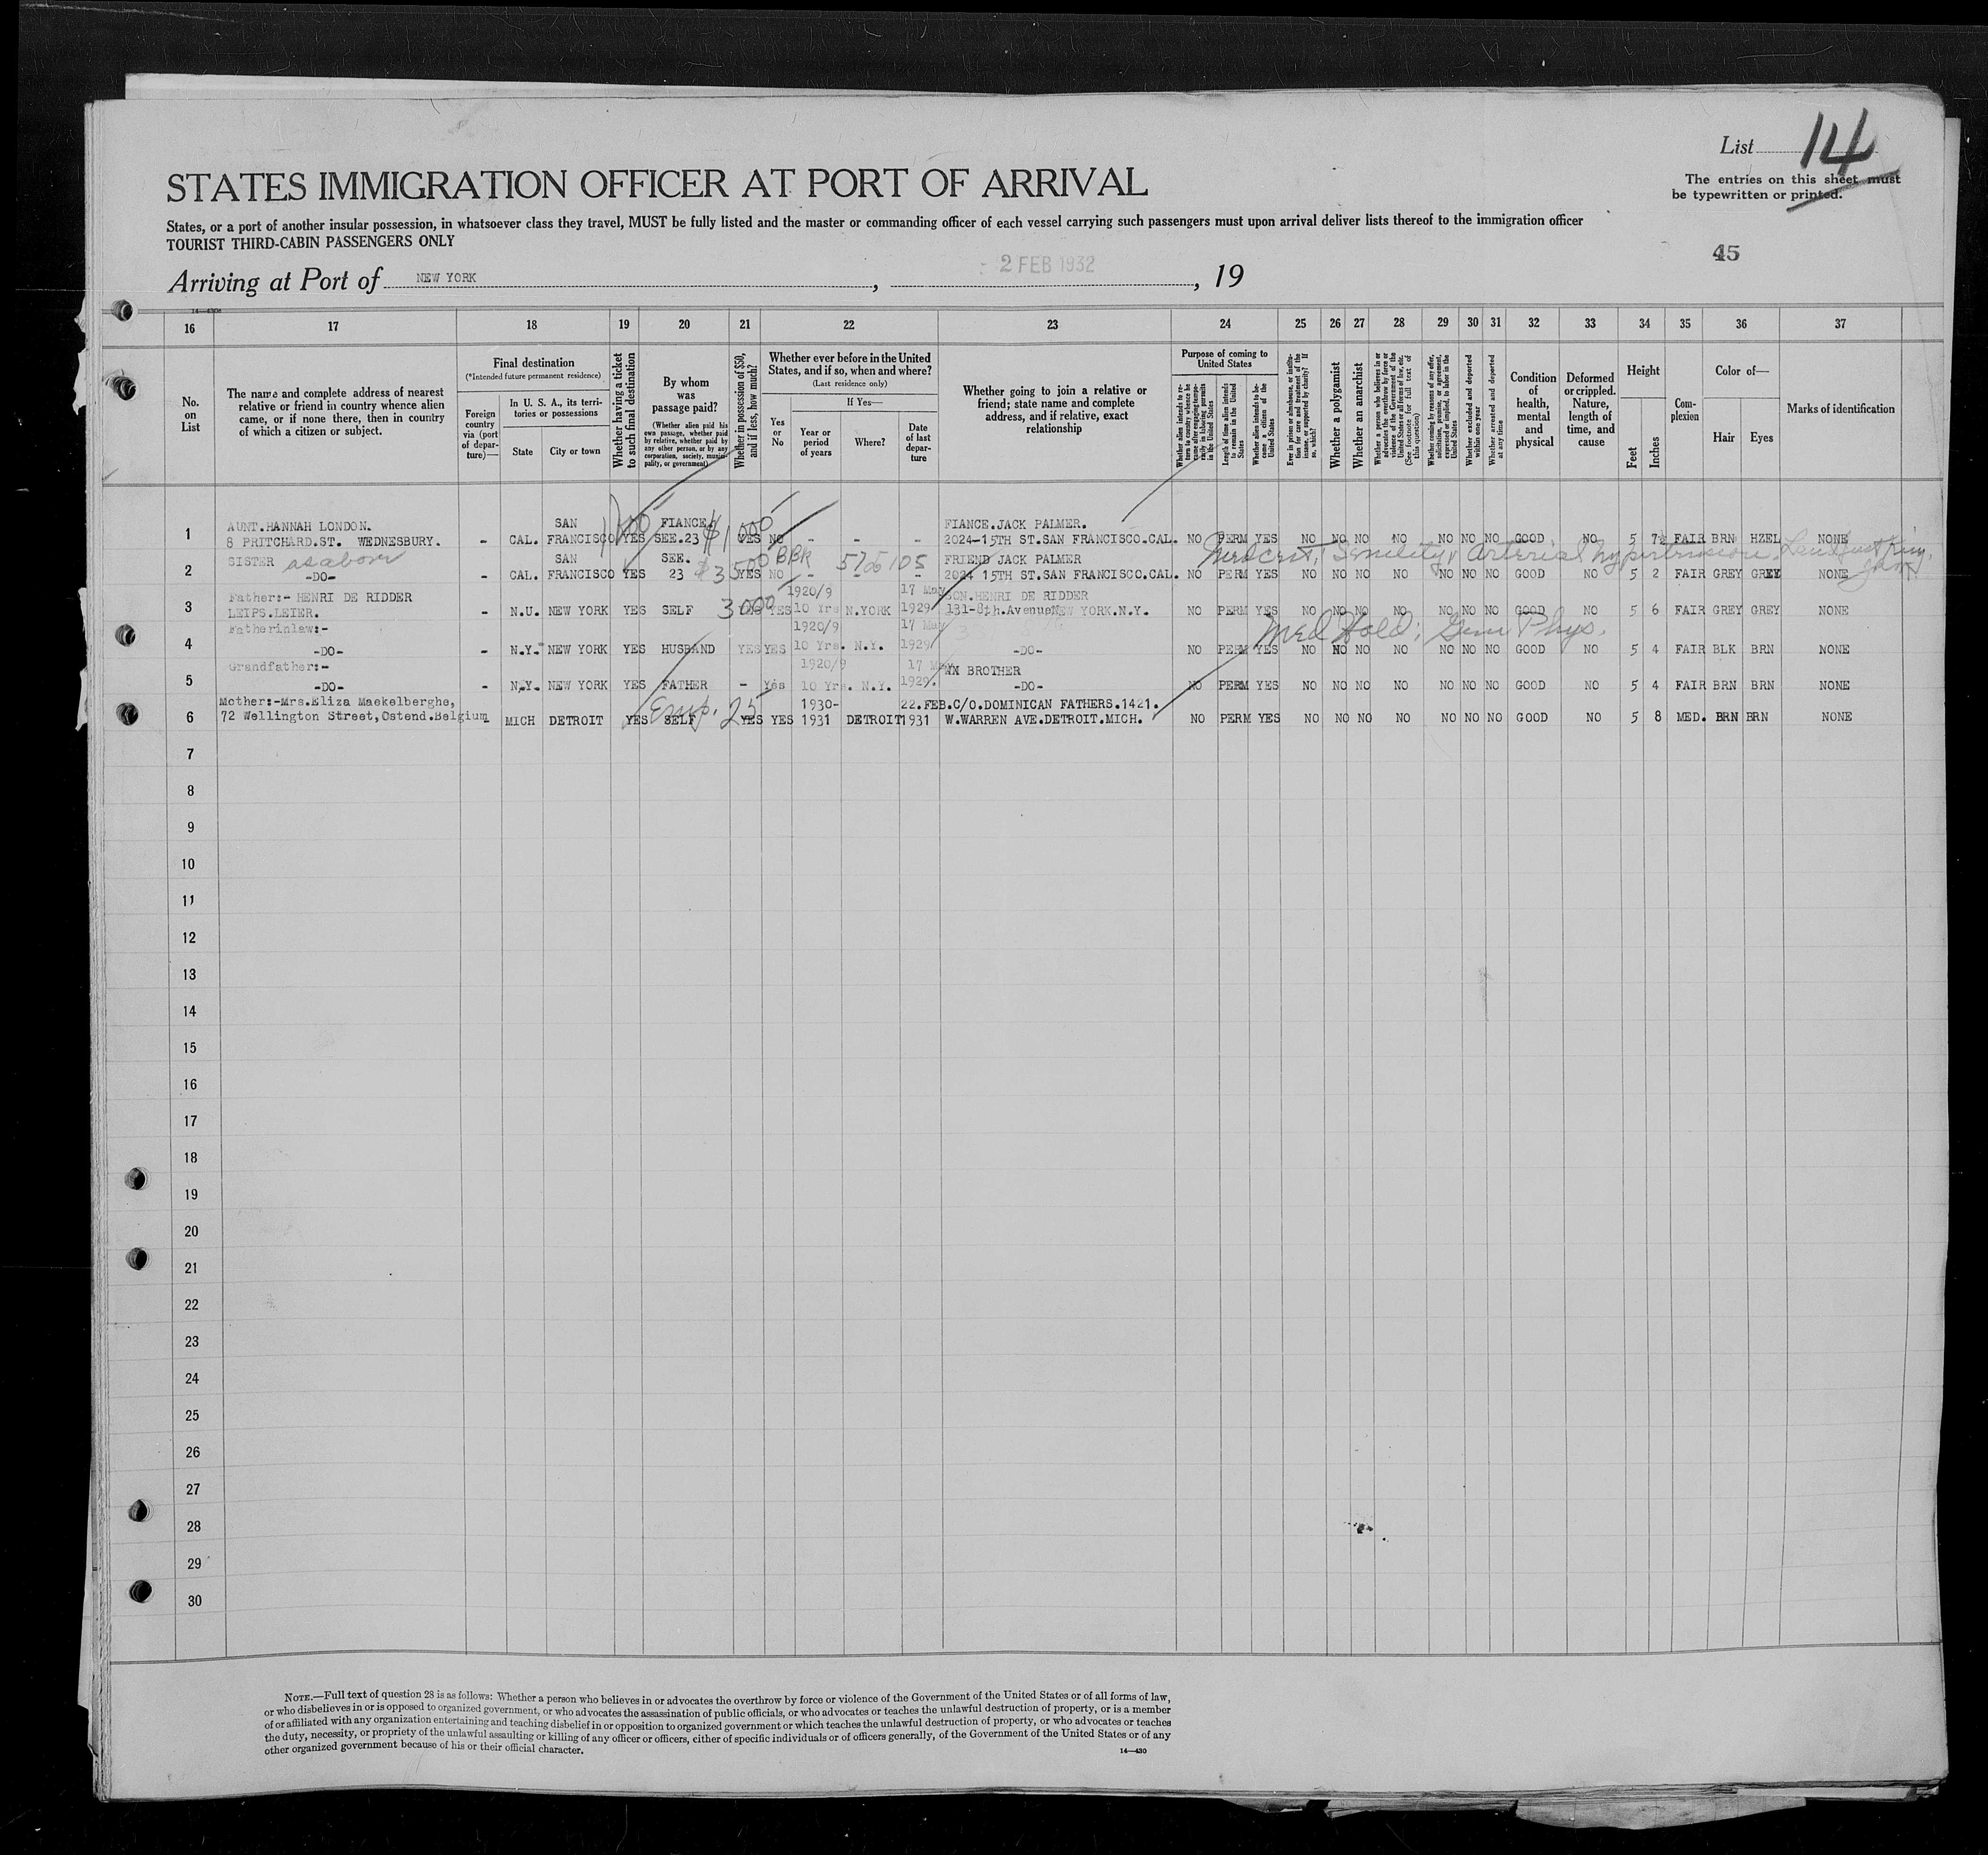 List 14
The entries on this sheet must
be typewritten or printed.
STATES IMMIGRATION OFFICER AT PORT OF ARRIVAL
States, or a port of another insular possession, in whatsoever class they travel, MUST be fully listed and the master or commanding officer of each vessel carrying such passengers must upon arrival deliver lists thereof to the immigration officer
TOURIST THIRD-CABIN PASSENGERS ONLY
45
Arriving at Port of NEW YORK, 2 FEB 1932, 19
14—430
16 17 18 19 20 21 22 23 24 25 26 27 28 29 30 31 32 33 34 35 36 37
No. on List
The name and complete address of nearest
relative or friend in country whence alien
came, or if none there, then in country
of which a citizen or subject.
Final destination
(*Intended future permanent residence)
Foreign country via (port of departure)—
In U. S. A., its territories or possessions
State City or town
Whether having a ticket to such final destination
By whom was passage paid?
(Whether alien paid his own passage, whether paid by relative, whether paid by any other person, or by any corporation, society, municipality, or government)
Whether in possession of $50, and if less, how much?
Whether ever before in the United
States, and if so, when and where?
(Last residence only)
Yes or No
If Yes—
Year or period of years
Where?
Date of last departure
Whether going to join a relative or
friend; state name and complete
address, and if relative, exact
relationship
Purpose of coming to United States
Whether alien intends to return to country whence he came after engaging temporarily in laboring pursuits in the United States
Length of time alien intends to remain in the United States
Whether alien intends to become a citizen of the United States
Ever in prison or almshouse, or institution for care and treatment of the insane, or supported by charity? If so, which?
Whether a polygamist
Whether an anarchist
Whether a person who believes in or advocates the overthrow by force or violence of the Government of the United States or all forms of law, etc. (See footnote for full text of this question)
Whether coming by reasons of any offer, solicitation, promise, or agreement, expressed or implied, to labor in the United States
Whether excluded and deported within one year
Whether arrested and deported at any time
Condition of health, mental and physical
Deformed or crippled. Nature, length of time, and cause
Height
Feet Inches
Complexion
Color of—
Hair Eyes
Marks of identification
AUNT.HANNAH LONDON. SAN FIANCE. FIANCE.JACK PALMER.
1 8 PRITCHARD.ST. WEDNESBURY. - CAL. FRANCISCO YES SEE.23 $1000 YES NO - - - 2024-15TH ST.SAN FRANCISCO.CAL. NO PERM YES NO NO NO NO NO NO NO GOOD NO 5 7½ FAIR BRN HZEL NONE
Med cert; Senility, arterial hypertension.
SISTER as above SAN SEE. BBR FRIEND JACK PALMER
2 -DO- - CAL. FRANCISCO YES 23 $3500 YES NO - - - 2024 15TH ST.SAN FRANCISCO.CAL. NO PERM YES NO NO NO NO NO NO NO GOOD NO 5 2 FAIR GREY GREY NONE
Father:- HENRI DE RIDDER 1920/9 17 May SON.HENRI DE RIDDER
3 LEIPS.LEIER. - N.U. NEW YORK YES SELF 3000 YES 10 Yrs N.YORK 1929 131-8th.Avenue NEW YORK.N.Y. NO PERM YES NO NO NO NO NO NO NO GOOD NO 5 6 FAIR GREY GREY NONE
Fatherinlaw:- 1920/9 17 May Med Hold;
4 -DO- - N.Y. NEW YORK YES HUSBAND YES YES 10 Yrs. N.Y. 1929 -DO- NO PERM YES NO NO NO NO NO NO NO GOOD NO 5 4 FAIR BLK BRN NONE
Grandfather:- 1920/9 17 May BROTHER
5 -DO- - N.Y. NEW YORK YES FATHER - Yes 10 Yrs. N.Y. 1929. -DO- NO PERM YES NO NO NO NO NO NO NO GOOD NO 5 4 FAIR BRN BRN NONE
Mother:-Mrs.Eliza Maekelberghe, 1930- 22.FEB. C/O.DOMINICAN FATHERS.1421.
6 72 Wellington Street,Ostend.Belgium MICH DETROIT YES SELF 25 YES YES 1931 DETROIT 1931 W.WARREN AVE.DETROIT.MICH. NO PERM YES NO NO NO NO NO NO NO GOOD NO 5 8 MED. BRN BRN NONE
7
8
9
10
11
12
13
14
15
16
17
18
19
20
21
22
23
24
25
26
27
28
29
30
NOTE.—Full text of question 28 is as follows: Whether a person who believes in or advocates the overthrow by force or violence of the Government of the United States or of all forms of law,
or who disbelieves in or is opposed to organized government, or who advocates the assassination of public officials, or who advocates or teaches the unlawful destruction of property, or is a member
of or affiliated with any organization entertaining and teaching disbelief in or opposition to organized government or which teaches the unlawful destruction of property, or who advocates or teaches
the duty, necessity, or propriety of the unlawful assaulting or killing of any officer or officers, either of specific individuals or of officers generally, of the Government of the United States or of any
other organized government because of his or their official character.
14—430